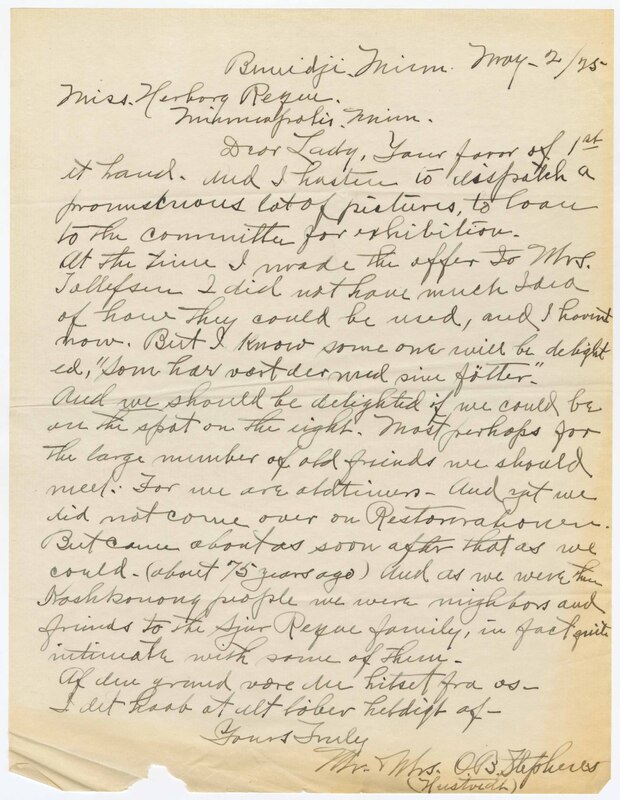 Bemidji, Minn. May - 2/25
Miss. Herborg Reque.
Minneapolis, Minn.
Dear Lady, Your favor of 1st
at hand. And I hasten to disspatch a
promuscuous lot of pistures, to loan
to the committee for exhibition.
At the time I made the offer to Mrs.
Tollefsen I did not have much Idea
of how they could be used, and I havint
now. But I know some one will be delight
ed, "Som har vært der med sine fötter".
And we should be delighted if we could be
on the spot on the eight. Most perhaps for
the large number of old friends we should
meet. For we are oldtimers - And yet we
did not come over on Restorarationen.
But came about as soon after that as we
could - (about 75 years ago) And as we were then
Koshkonong people we were neighbors and
friends to the Sjur Reque family, in fact quite
intimate with some of them -
Af den grund være De hilset fra os -
I det haab at alt löber heldigt af -
Yours Truly
Mr. & Mrs. O. B. Stephens
(Hustvedt)